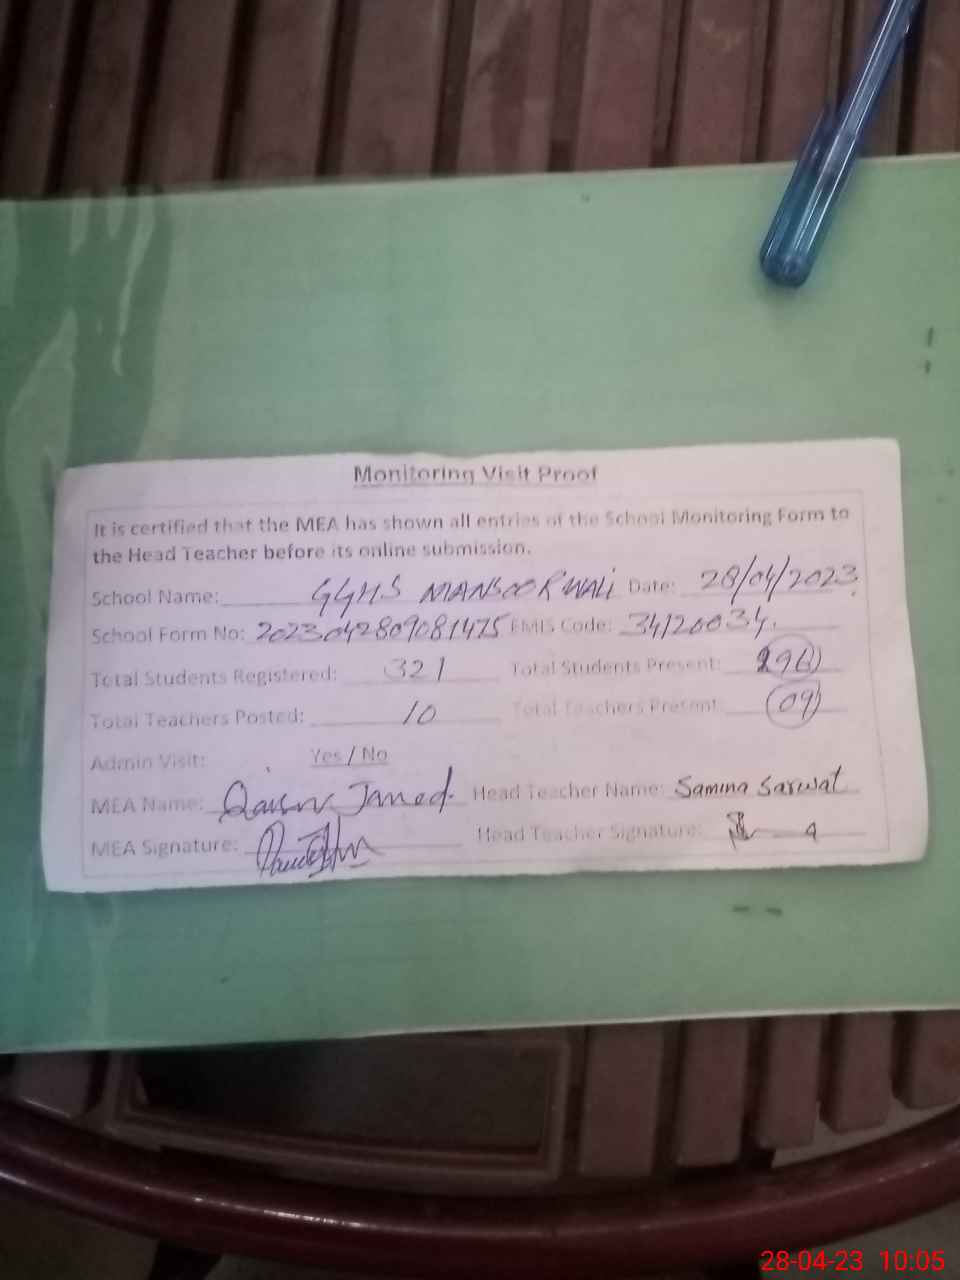 Monitoring Visit Proof
It is certified that the MEA has shown all entries of the School Monitoring Form to
the Head Teacher before its online submission.
School Name: GGHS MANSOORWALI Date: 28/04/2023
School Form No: 2023042809081475 EMIS Code: 34120034.
Total Students Registered: 321 Total Students Present: 296
Total Teachers Posted: 10 Total Teachers Present: 09
Admin Visit: Yes / No
MEA Name: Head Teacher Name: Samina Sarwat
MEA Signature: Head Teacher Signature:
28-04-23 10:05